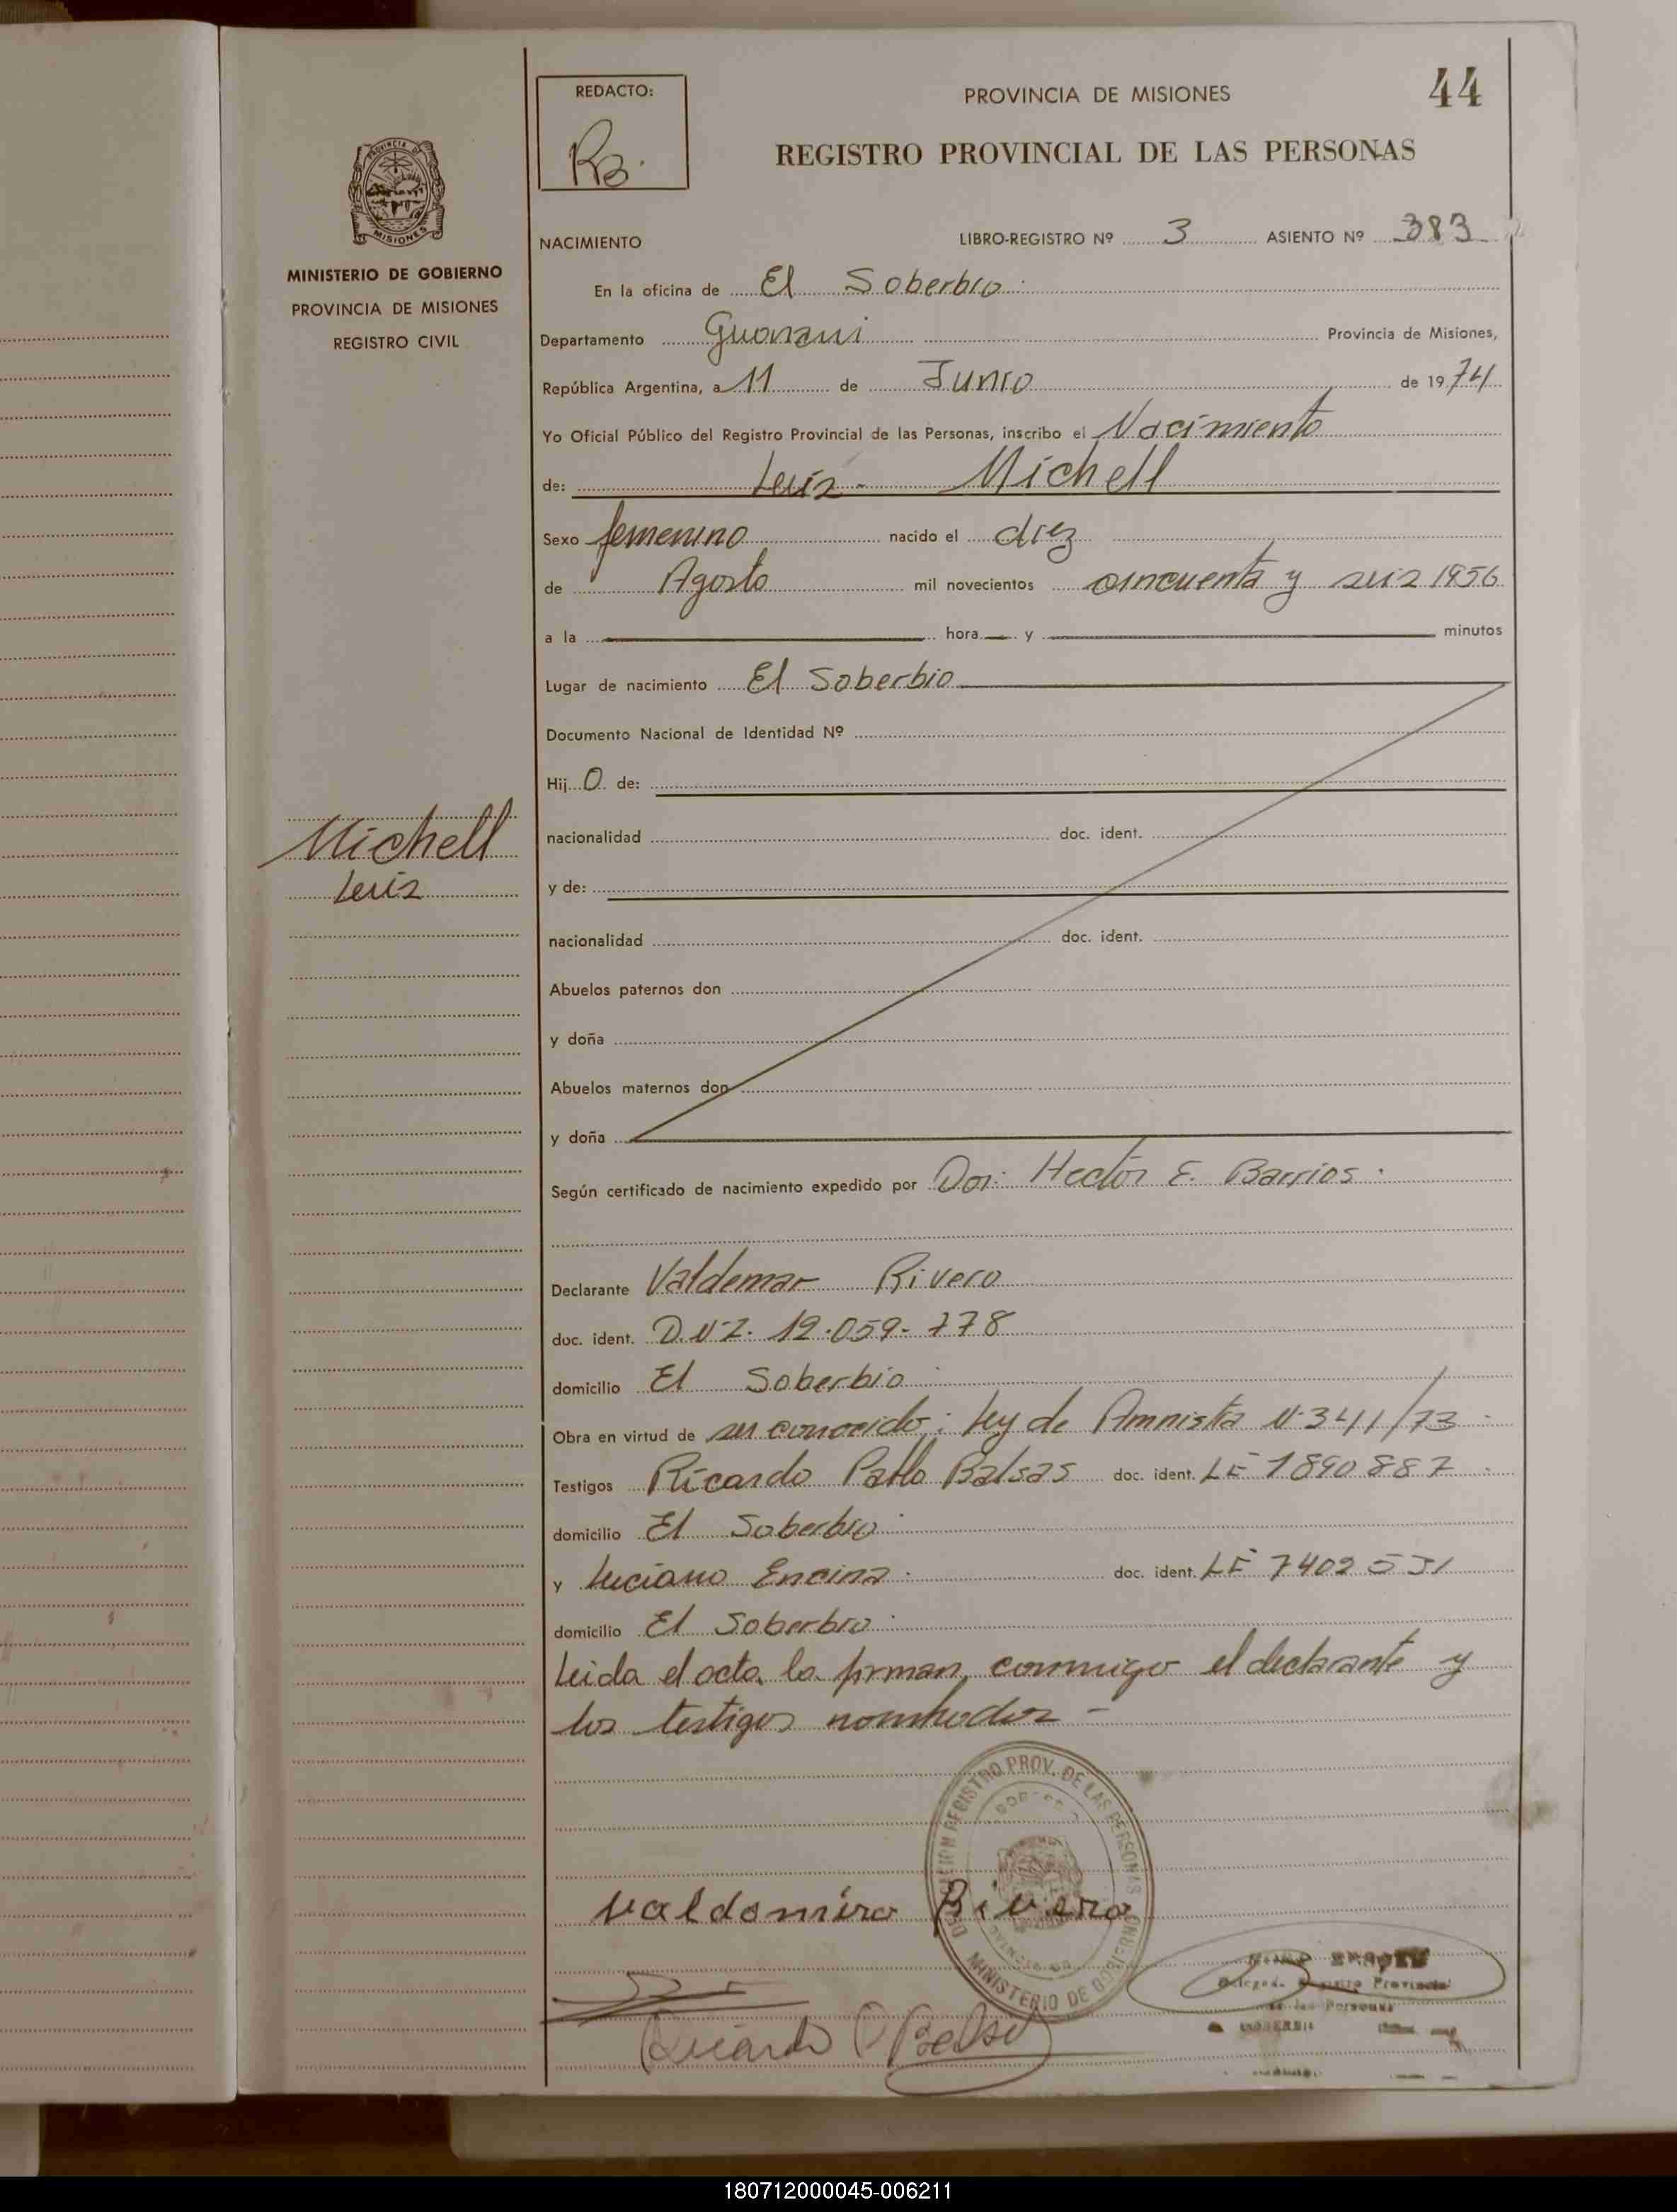 44
REDACTO:
PROVINCIA DE MISIONES
REGISTRO PROVINCIAL DE LAS PERSONAS
NACIMIENTO
LIBRO-REGISTRO Nº 3 ASIENTO Nº 383
PROVINCIA DE MISIONES
MINISTERIO DE GOBIERNO
PROVINCIA DE MISIONES
REGISTRO CIVIL
En la oficina de El Soberbio
Departamento Guarani Provincia de Misiones,
República Argentina, a 11 de Junio de 1974
Yo Oficial Público del Registro Provincial de las Personas, inscribo el Nacimiento
de: Luis Michell
Sexo femenino nacido el diez
de Agosto mil novecientos cincuenta y seis 1956
a la hora y minutos
Lugar de nacimiento El Soberbio
Documento Nacional de Identidad Nº
Hijo de:
Michell
Luis
nacionalidad doc. ident.
y de:
nacionalidad doc. ident.
Abuelos paternos don
y doña
Abuelos maternos don
y doña
Según certificado de nacimiento expedido por Dor. Hector E. Barrios.
Declarante Valdemar Rivero
doc. ident. D.N.I. 12.059.778
domicilio El Soberbio
Obra en virtud de ser conocido: Ley de Amnistia N 341/73
Testigos Ricardo Pablo Balsas doc. ident. LE 1890887
domicilio El Soberbio
y Luciano Encina doc. ident. LE 7402531
domicilio El Soberbio
Leida el acta la firman conmigo el declarante y
los testigos nombrados -
DIRECCION REGISTRO PROV. DE LAS PERSONAS
MINISTERIO DE GOBIERNO
Valdomiro Rivero
Ricardo P Balsas
Registro Provincial
de las Personas
180712000045-006211